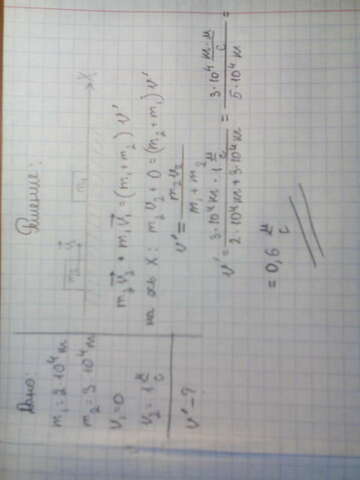 Дано:
m₁ = 2·10⁴ кг
m₂ = 3·10⁴ кг
v₁ = 0
v₂ = 1 м/с
v' - ?
Решение:
m₂ v₂ m₁ X
m₂v₂ + m₁v₁ = (m₁ + m₂) v'
на ось X: m₂v₂ + 0 = (m₂ + m₁) v'
v' = m₂v₂ / m₁ + m₂
v' = 3·10⁴ кг · 1 м/с / 2·10⁴ кг + 3·10⁴ кг = 3·10⁴ кг·м/с / 5·10⁴ кг =
= 0,6 м/с